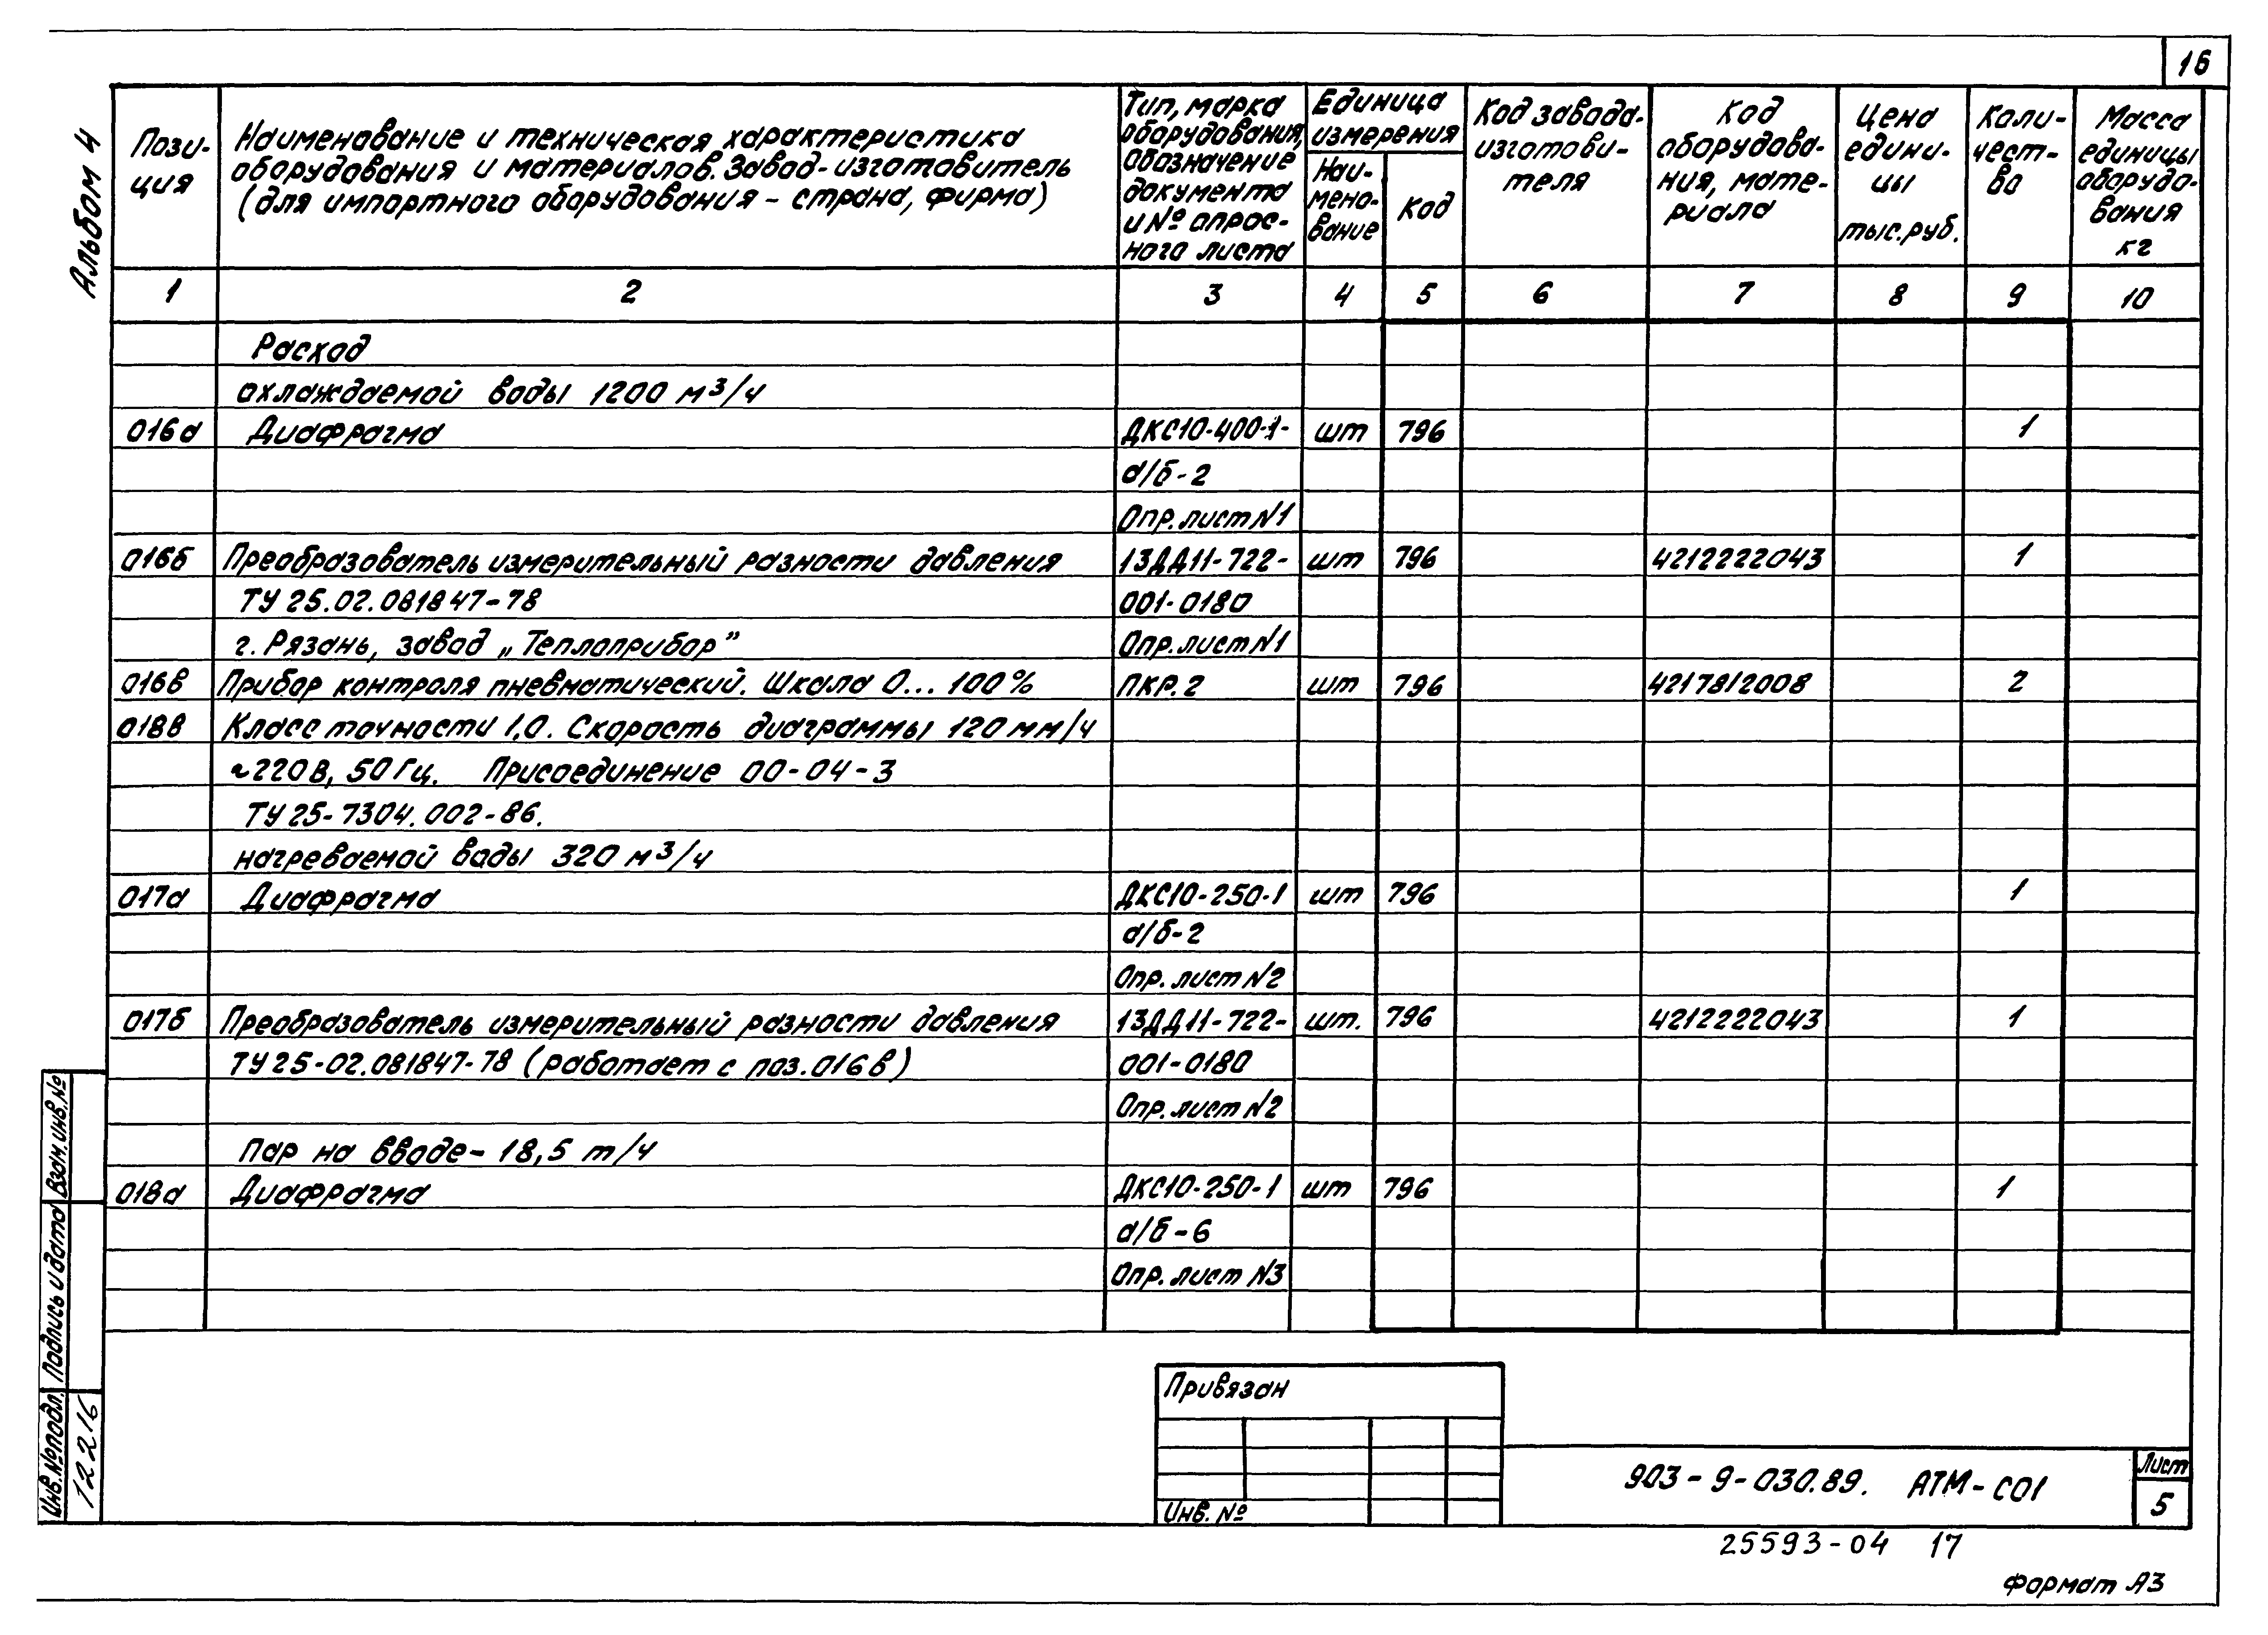 16
Альбом 4
Пози-
ция
Наименование и техническая характеристика
оборудования и материалов. Завод-изготовитель
(для импортного оборудования - страна, фирма)
Тип, марка
оборудования,
обозначение
документа
и № опрос-
ного листа
Единица
измерения
Наи-
мено-
вание
Код
Код завода-
изготови-
теля
Код
оборудова-
ния, мате-
риала
Цена
едини-
цы
тыс.руб.
Коли-
чест-
во
Масса
единицы
оборудо-
вания
кг
1 2 3 4 5 6 7 8 9 10
Расход
охлаждаемой воды 1200 м³/ч
016а Диафрагма ДКС10-400-1- шт 796 1
а/б-2
Опр. лист N1
016б Преобразователь измерительный разности давления 13ДД11-722- шт 796 4212222043 1
ТУ 25.02.081847-78 001-0180
г. Рязань, завод „Теплоприбор" Опр. лист N1
016в Прибор контроля пневматический. Шкала 0...100% ПКР.2 шт 796 4217812008 2
018в Класс точности 1,0. Скорость диаграммы 120 мм/ч
~220В, 50Гц. Присоединение 00-04-3
ТУ 25-7304.002-86.
нагреваемой воды 320 м³/ч
017а Диафрагма ДКС10-250-1 шт 796 1
а/б-2
Опр. лист N2
017б Преобразователь измерительный разности давления 13ДД11-722- шт. 796 4212222043 1
ТУ 25-02.081847-78 (работает с поз.016в) 001-0180
Опр. лист N2
Пар на вводе - 18,5 т/ч
018а Диафрагма ДКС10-250-1 шт 796 1
а/б-6
Опр. лист N3
Взам. инв. №
Подпись и дата
Инв. № подл.
12216
Привязан
Инв. №
903-9-030.89. АТМ-СО1
Лист
5
25593-04 17
Формат А3